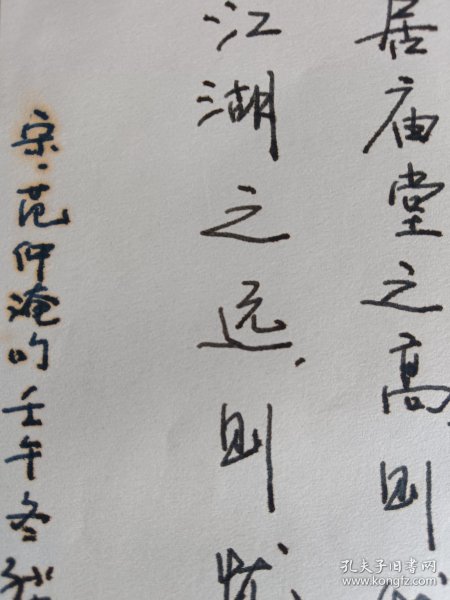 居庙堂之高,则
江湖之远,则忧
宋·范仲淹吟壬午冬
孔夫子旧书网